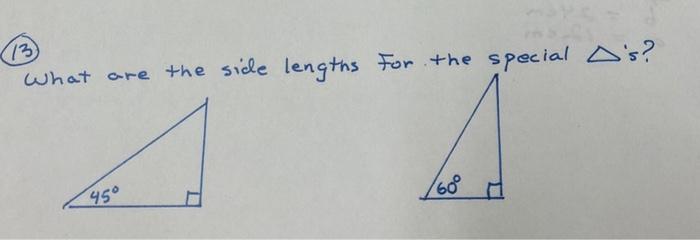 13
What are the side lengths For the special △'s?
45° 60°